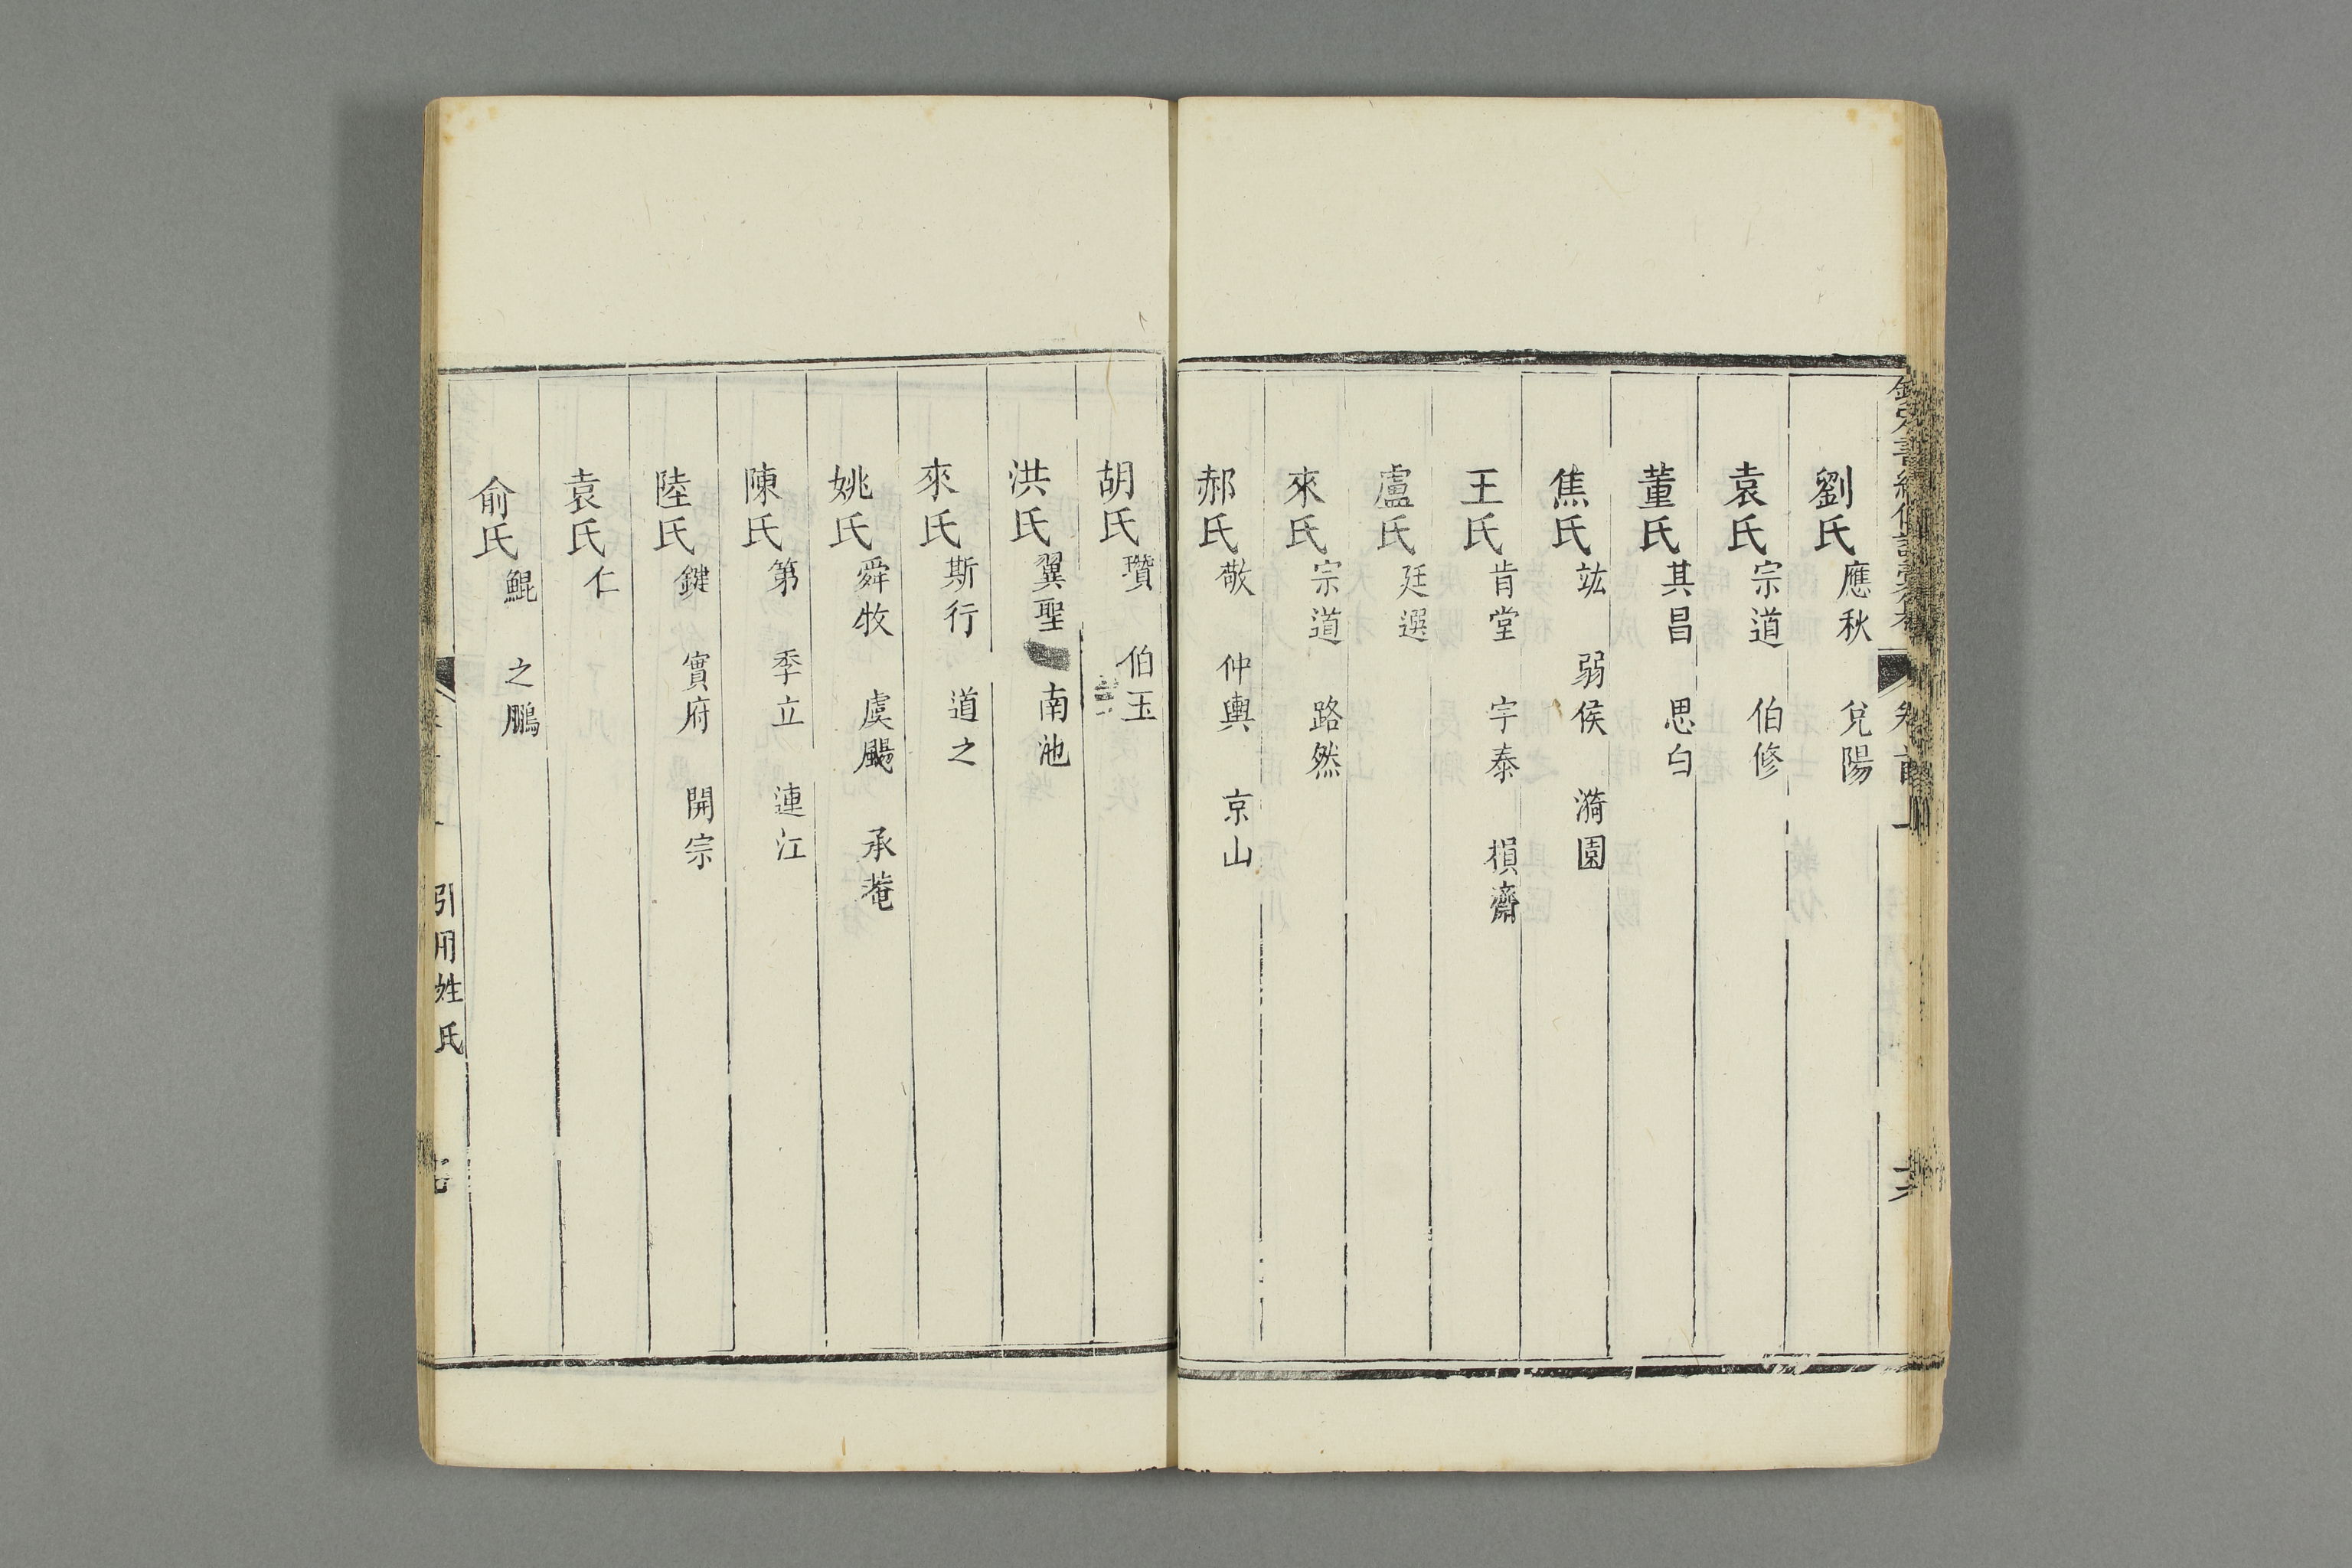 劉氏應秋 兌陽
袁氏宗道 伯修
董氏其昌 思白
焦氏竑 弱侯 漪園
王氏肯堂 宇泰 損齋
盧氏廷選
來氏宗道 路然
郝氏敬 仲輿 京山
胡氏瓚 伯玉
洪氏翼聖 南池
來氏斯行 道之
姚氏舜牧 虞颺 承菴
陳氏第 季立 連江
陸氏鍵 實府 開宗
袁氏仁
俞氏鯤 之鵬
引用姓氏